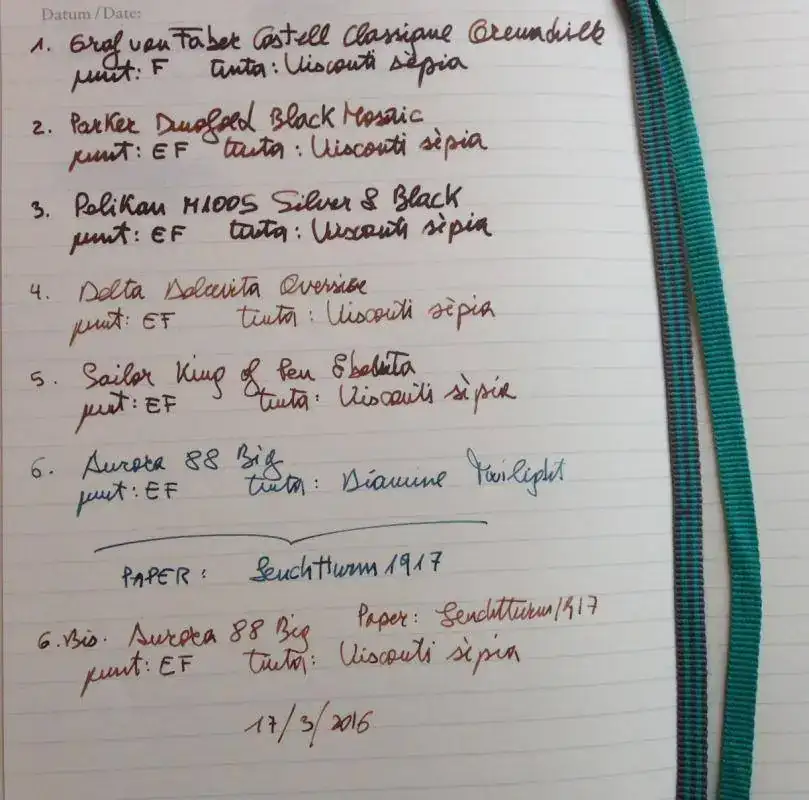 Datum / Date:
1. Graf von Faber Castell Classique Grenadilla
punt: F tinta: Visconti sèpia
2. Parker Duofold Black Mosaic
punt: EF tinta: Visconti sèpia
3. Pelikan M1005 Silver & Black
punt: EF tinta: Visconti sèpia
4. Delta Dolcevita Oversize
punt: EF tinta: Visconti sèpia
5. Sailor King of Pen Ebonita
punt: EF tinta: Visconti sèpia
6. Aurora 88 Big
punt: EF tinta: Diamine Twilight
PAPER: Leuchtturm 1917
6. Bis. Aurora 88 Big Paper: Leuchtturm 1917
punt: EF tinta: Visconti sèpia
17/3/2016